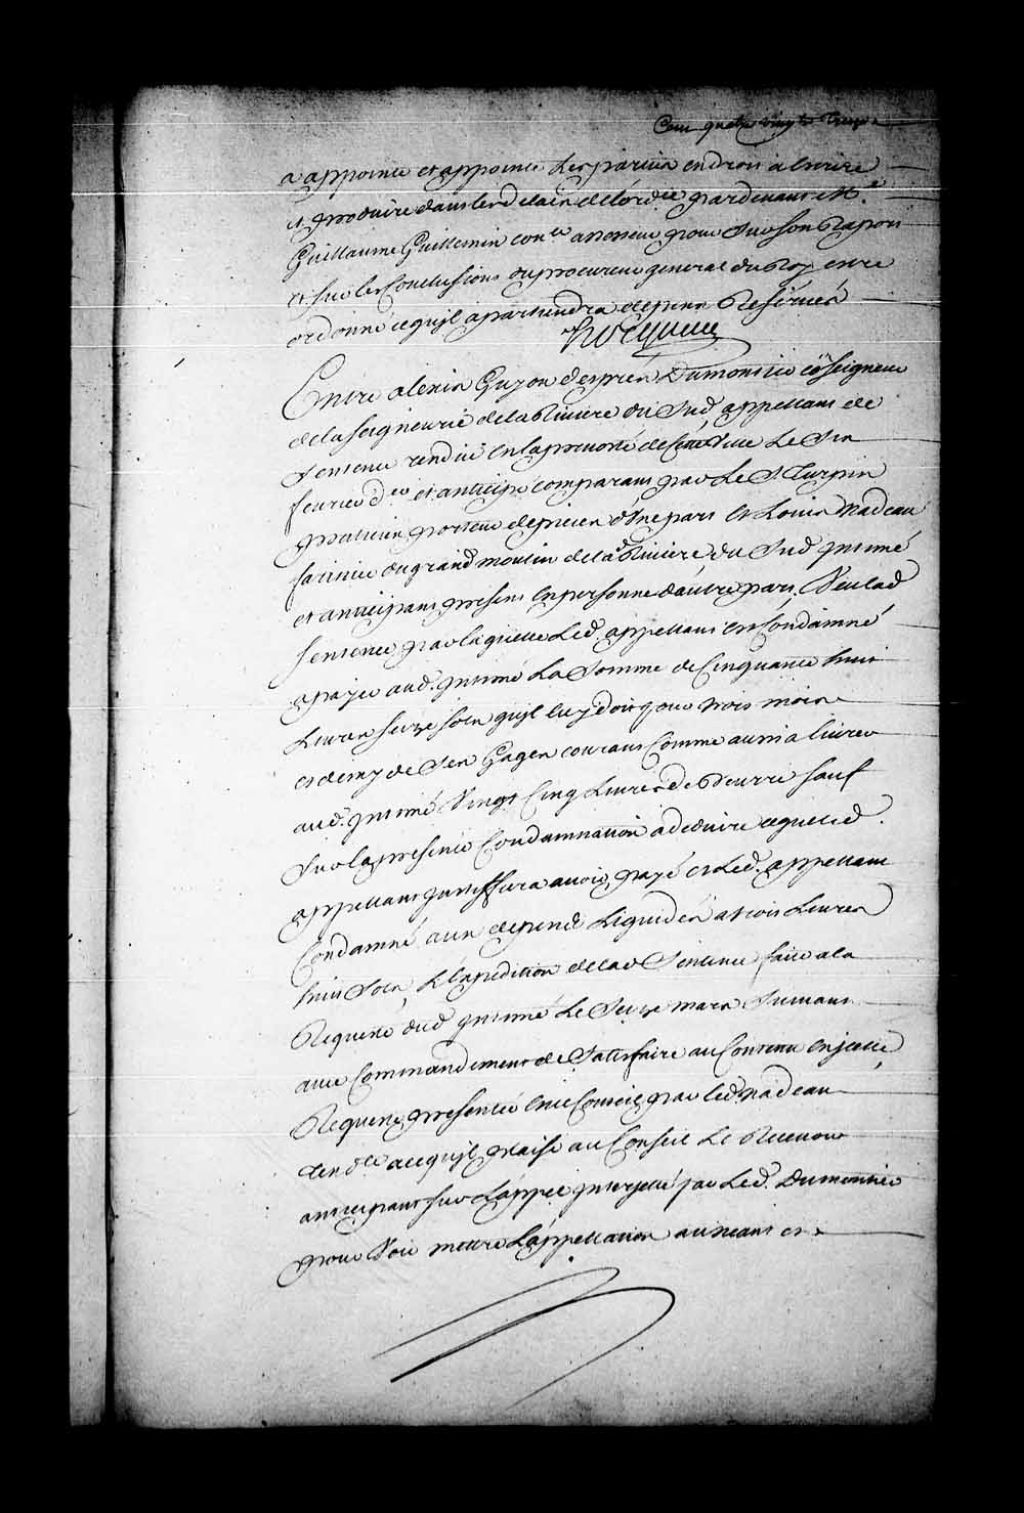 Cent quatre vingts treize
a appointé et appointe les parties en droit a Escrire
et produire dans les delais de l'ord.ce pardevant M.e
Guillaume Guillemin con.er assesseur pour sur son Raport
et sur les Conclusions du procureur general du Roy estre
ordonné ce quil apartiendra depens Reservés
Hocquart
Entre alexis Guyon desprez Dumontier coseigneur
de la seigneurie de la Riviere du Sud appellant de
sentence rendüe en la prevosté de cette ville Le Six
fevrier d.er et anticipé comparant par Le S. Turpin
praticien porteur de pieces d'Une part Et Louis Nadeau
farinier du grand moulin de lad Riviere du Sud Intimé
et anticipant present En personne d'autre part, Veu lad
sentence par laquelle Led. appellant est Condamné
a payer aud. Intimé La Somme de Cinquante huit
Livres seize sols quil luy doit pour trois mois
et demy de Ses Gages courans Comme aussi a livrer
aud. Intimé Vingt Cinq Livres de Beurre sauf
Sur la presente Condamnation a deduire ce que led.
appellant Justiffiera avoir payé et Led. appellant
Condamné aux depens Liquidés a trois Livres
huit Sols, L'Expedition de lad Sentence faite a la
Requete dud Intimé Le Seize mars Suivant
avec Commandement de Satisfaire au Contenu En jcelle,
Requete presentée En ce Conseil par led Nadeau
tend.te a ce quil plaise au Conseil Le Recevoir
anticipant sur L'appel Interjetté par Led. Dumontier
pour Voir mettre L'appellation au neant et